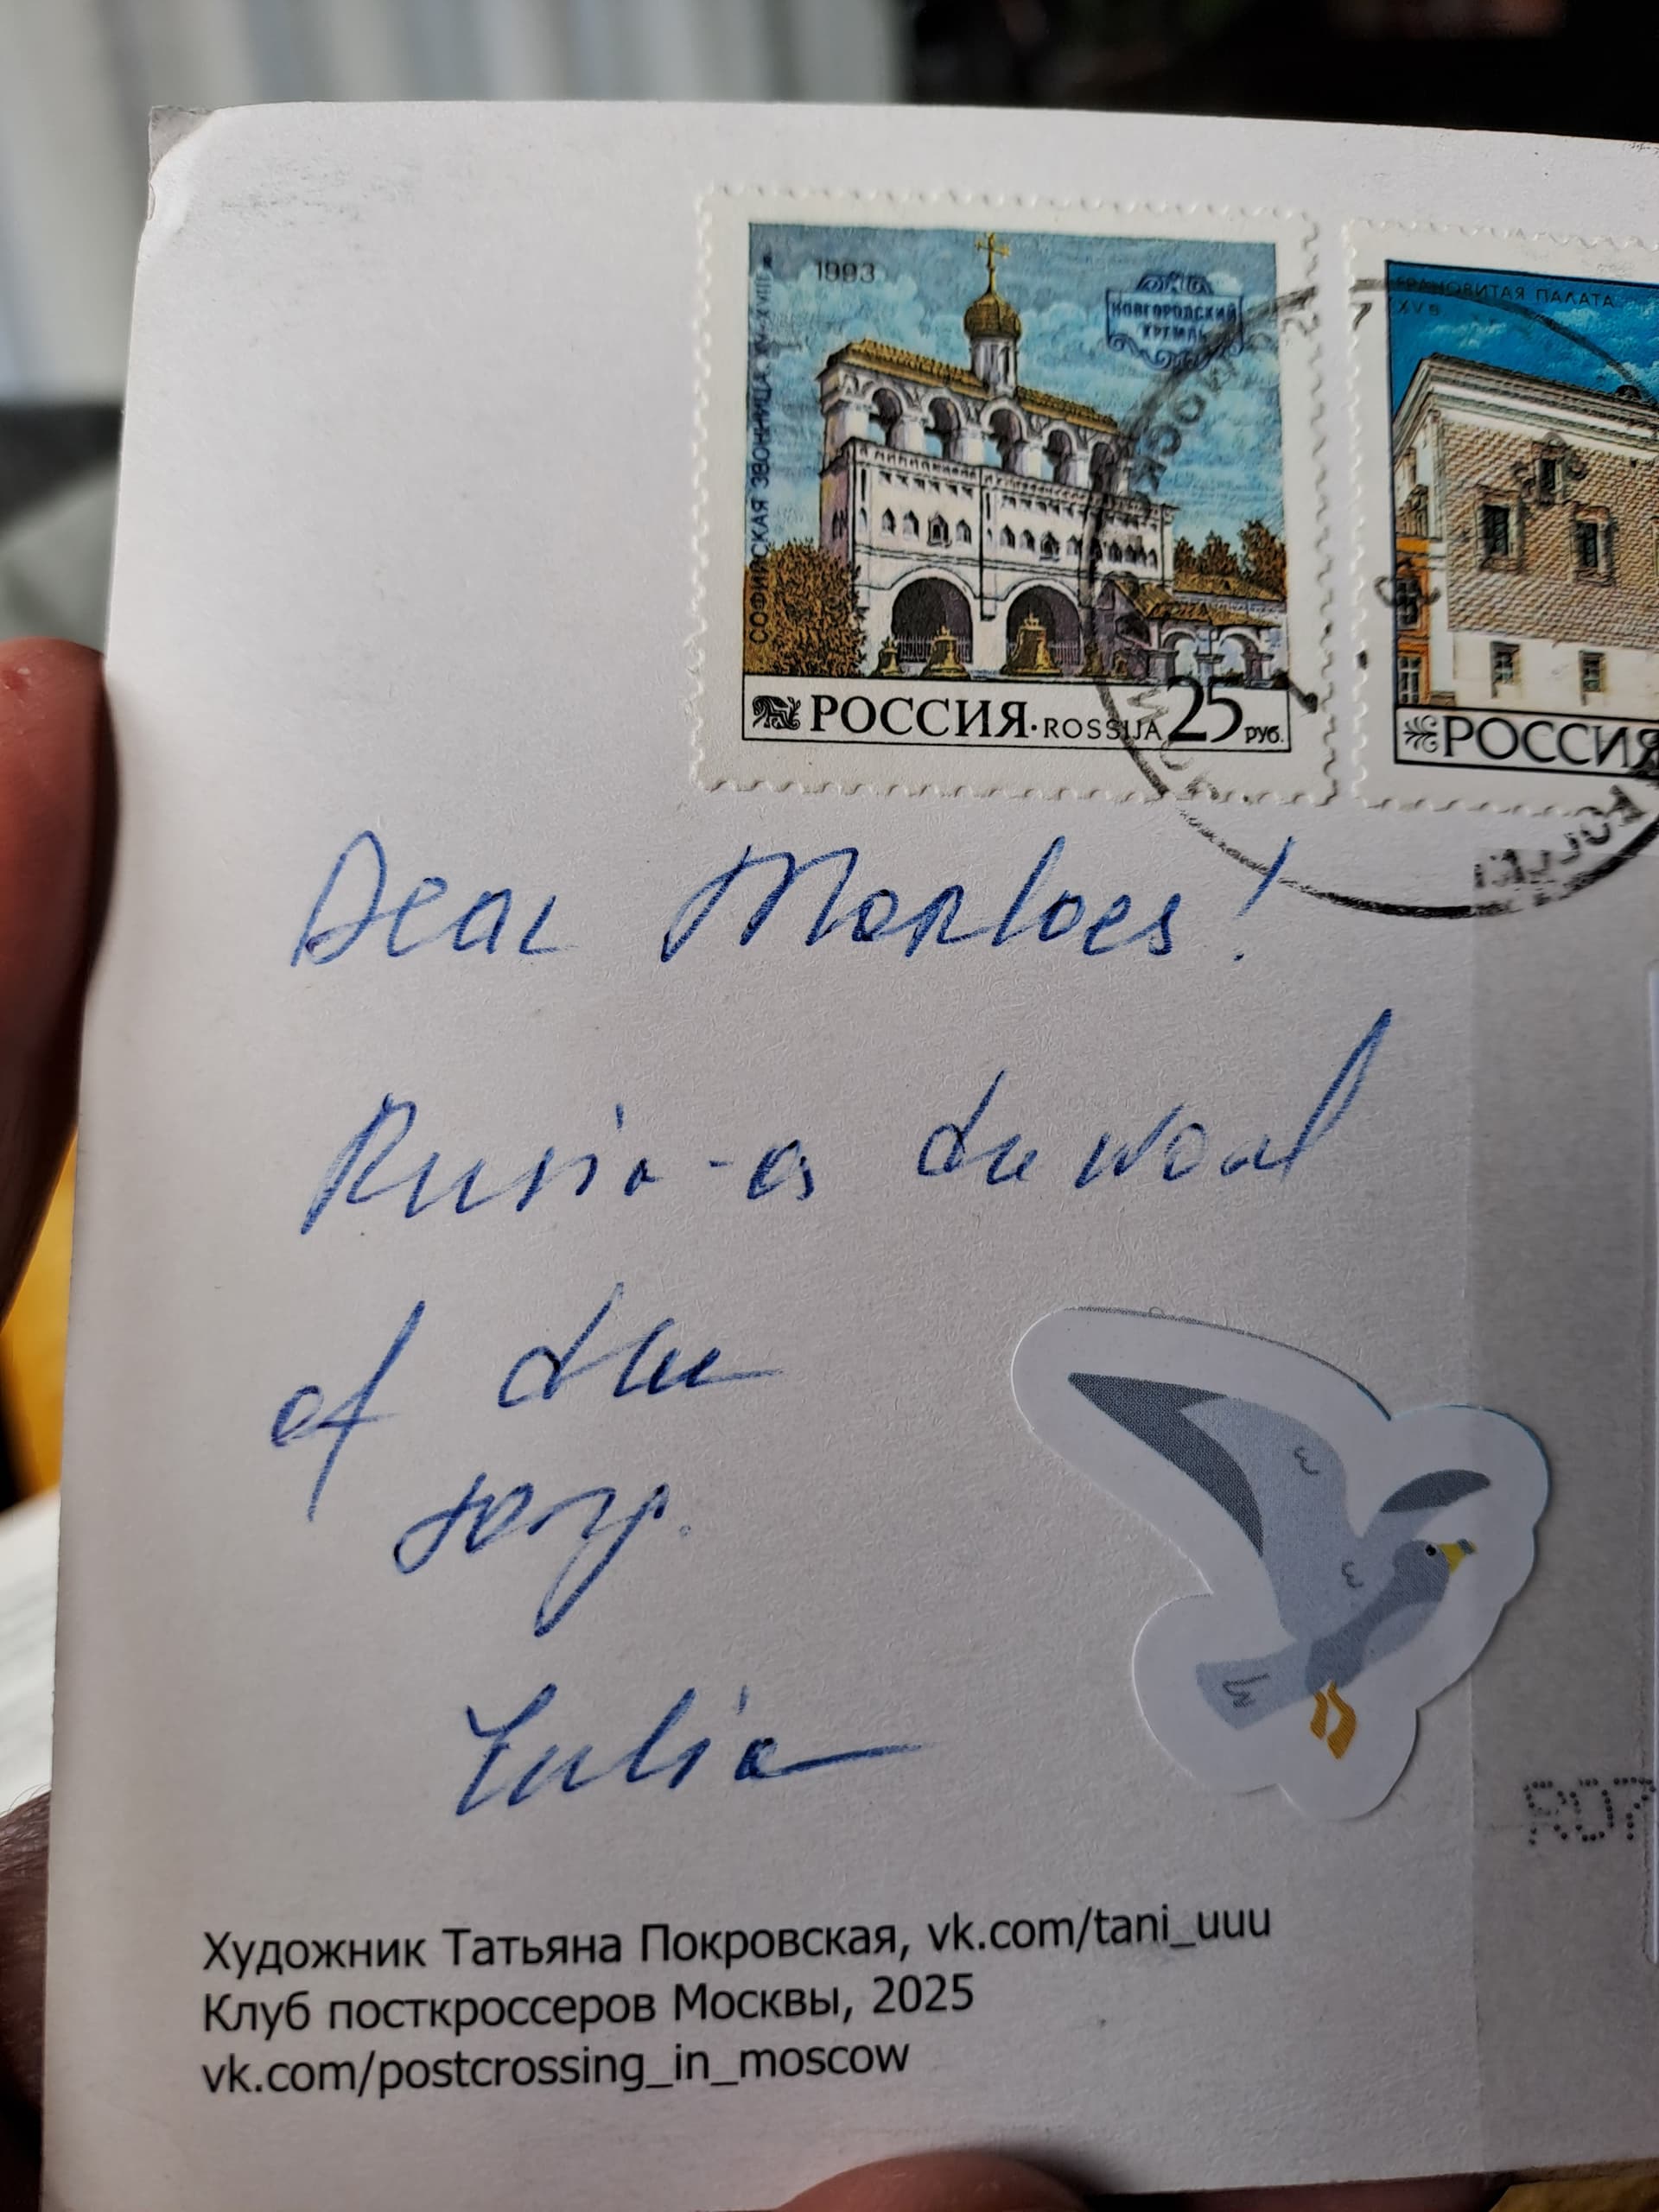 1993
НОВГОРОДСКИЙ
КРЕМЛЬ
СОФИЙСКАЯ ЗВОННИЦА. XV-XVIII в.
РОССИЯ · ROSSIJA 25 руб.
ГРАНОВИТАЯ ПАЛАТА
XV в
РОССИЯ
Dear Marloes!
Russia - is the
of the
Iulia
RU7
Художник Татьяна Покровская, vk.com/tani_uuu
Клуб посткроссеров Москвы, 2025
vk.com/postcrossing_in_moscow